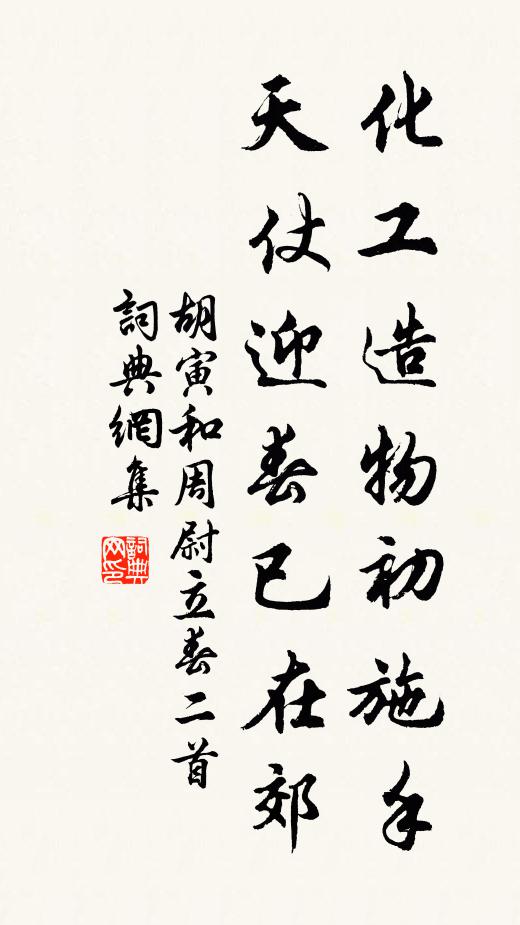 化工造物初施手
天仗迎春已在郊
胡寅和周尉立春二首
詞典網集
詞典网印